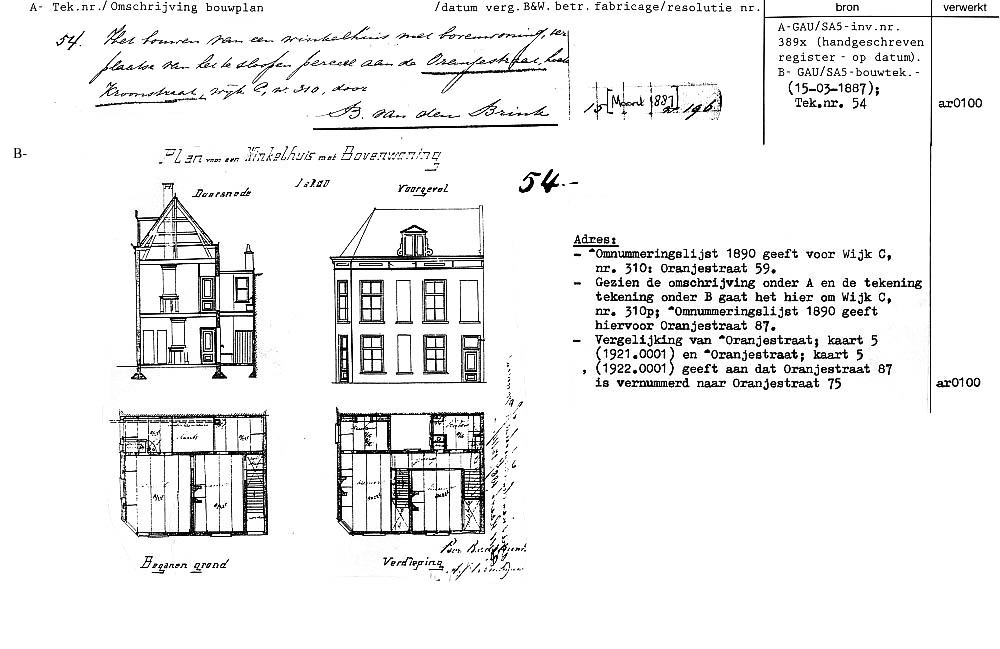 A- Tek.nr./ Omschrijving bouwplan /datum verg. B&W. betr. fabricage/resolutie nr. bron verwerkt
54. Het bouwen van een winkelhuis met bovenwoning, ter
plaatse van het te sloopen perceel aan de Oranjestraat, hoek
Kroonstraat, wijk C, nr. 310, door
B. van den Brink
15 [Maart 1887] nr. 196
A-GAU/SA5-inv.nr.
389x (handgeschreven
register - op datum).
B- GAU/SA5-bouwtek.-
(15-03-1887);
Tek.nr. 54 ar0100
B-
Plan voor een Winkelhuis met Bovenwoning
Doorsnede
Voorgevel
54.-
Adres:
- ^Omnummeringslijst 1890 geeft voor Wijk C,
nr. 310: Oranjestraat 59.
- Gezien de omschrijving onder A en de tekening
tekening onder B gaat het hier om Wijk C,
nr. 310p; ^Omnummeringslijst 1890 geeft
hiervoor Oranjestraat 87.
- Vergelijking van ^Oranjestraat; kaart 5
(1921.0001) en ^Oranjestraat; kaart 5
, (1922.0001) geeft aan dat Oranjestraat 87
is vernummerd naar Oranjestraat 75 ar0100
Beganen grond
Verdieping